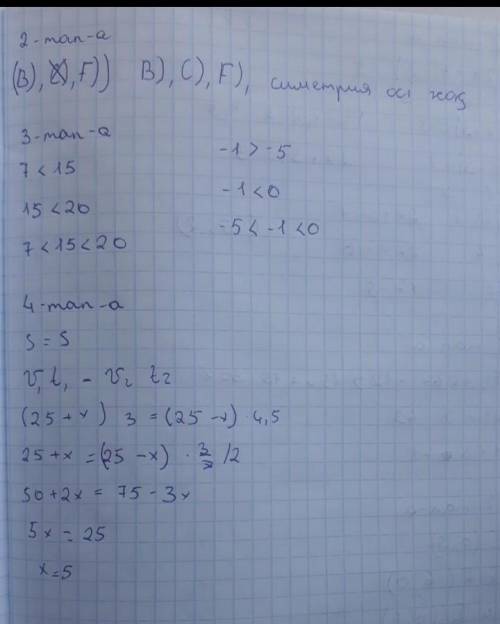 2-тап-а
(В), С), F)) В), С), F), симетрия осі жоқ
3-тап-а
7 < 15
15 < 20
7 < 15 < 20
-1 > -5
-1 < 0
-5 < -1 < 0
4-тап-а
S = S
V₁t₁ - V₂ t₂
(25 + x) 3 = (25 - x) · 4,5
25 + x = (25 - x) · 3/2 /2
50 + 2x = 75 - 3x
5x = 25
x = 5